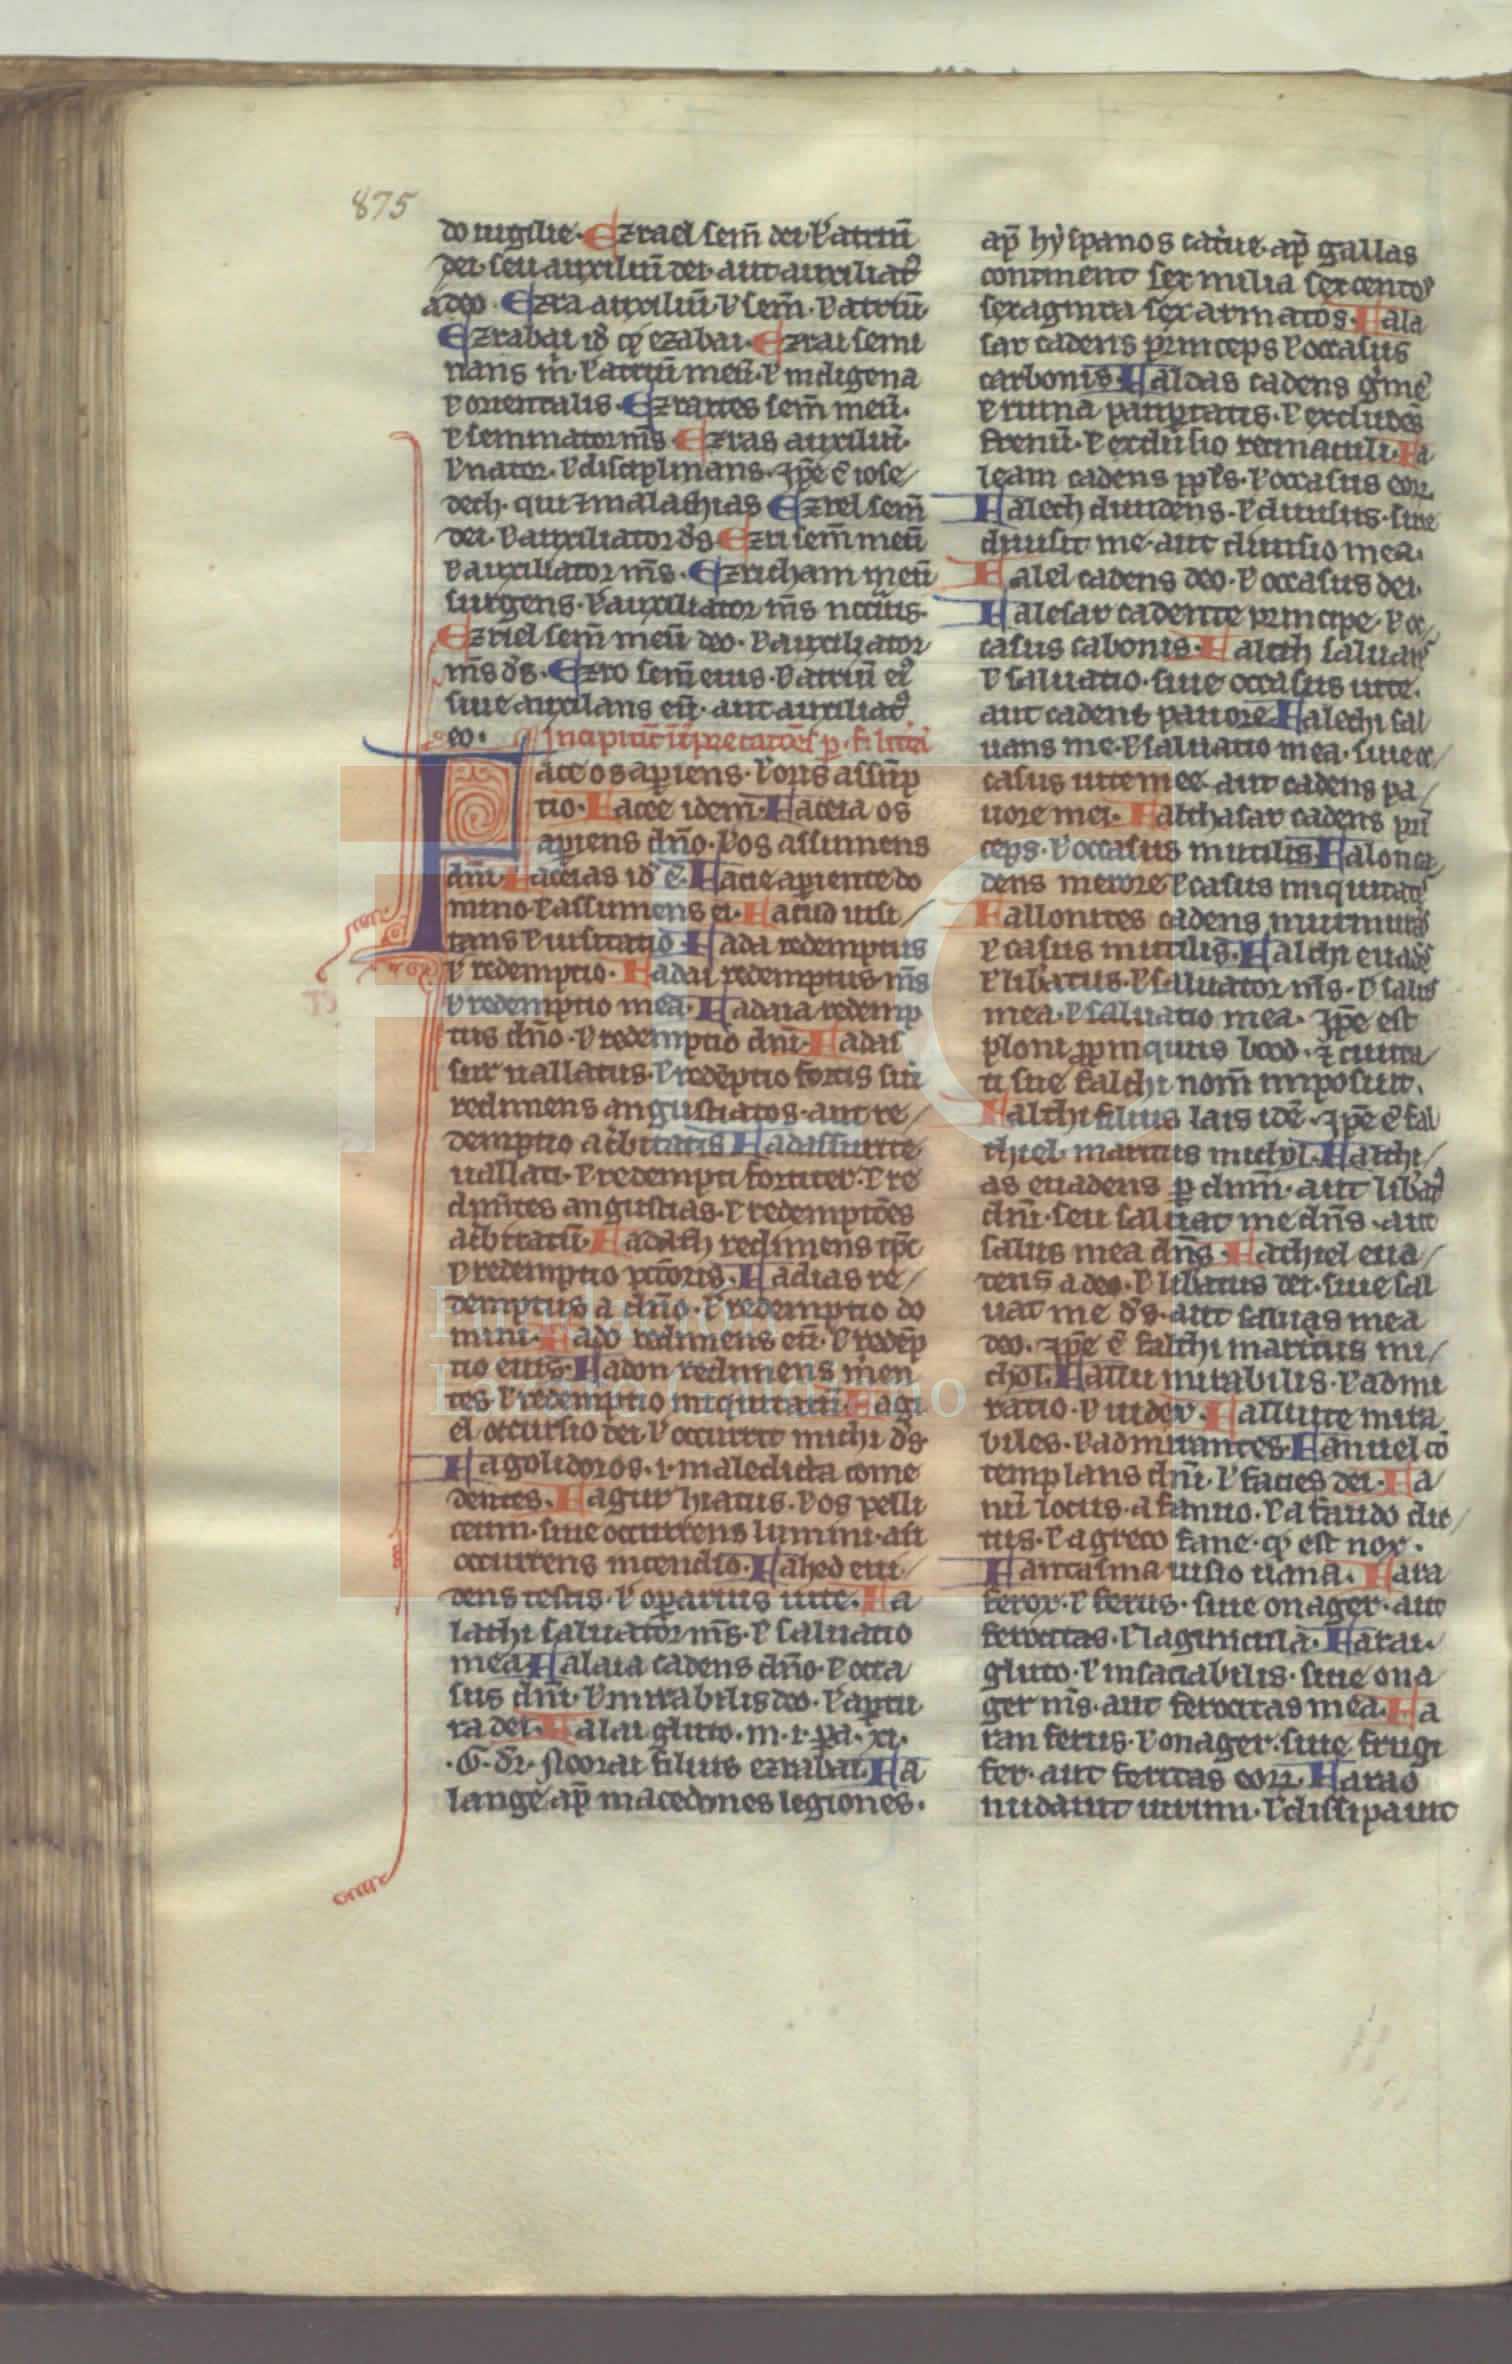 875
do uigilie. Ezrael sem̄ dei. ł atriū
dei. seu auxiliū dei. aut auxiliat᷒
a deo. Ezra auxiliū. ł sem̄. ł atriū.
Ezrabai id̄ qd̄ ezabai. Ezrai semi
nans m̄. ł atriū meū. ł indigena
ł orientalis. Ezraites sem̄ meū.
ł seminator m̄s. Ezras auxiliū.
ł nator. ł disciplinans. ip̄e ē iose
dech. qui ⁊ malachias Ezrel sem̄
dei. ł auxiliator d̄s Ezri sem̄ meū
ł auxiliator m̄s. Ezricham meū
surgens. ł auxiliator m̄s
Ezriel sem̄ meū deo. ł auxiliator
m̄s d̄s. Ezro sem̄ eius. ł atriū ei᷒
siue auxilians eū. aut auxiliat᷒
eo. Incipiūt
Facee os apiens. ł oris assūp
tio. Facee idem. Faceia os
apiens dn̄o. ł os assumens
dn̄i. Faceias id̄ ē. Facie apiente do
mino. ł assumens ei. Facud uisi
tans ł uisitatio. Fada redemptus
ł redemptio. Fadai redemptus m̄s
ł redemptio mea. Fadaia redemp
tus dn̄o. ł redemptio dn̄i. Fadas
sur uallatus. ł redēptio fortis siū
redimens angustiatos. aut re
demptio arbitatis Fadassurite
uallati. ł redempti fortiter. ł re
dimētes angustias. ł redemptiōes
arbitatū. Fadath redimens
ł redemptio Fadias re
demptus a dn̄o. ł redemptio do
mini. Fado redimens eū. ł redēp
tio eius. Fadon redimens men
tes ł redemptio iniquitatū. Fagi
el occursio dei. ł occurrit michi d̄s.
Fagolidoros. i. maledicta come
dentes. Fagur hiatus. ł os pelli
ceum. siue occurrens lumini. aū
occurrens incendio. Fahed eui
dens testis. ł oparius uite. Fa
lathi saluator m̄s. ł saluatio
mea Falaia cadens dn̄o. ł occa
sus dn̄i. ł mirabilis deo. ł aptu
ra dei. Falai gluto. m. i. pa. xi.
.G. dr̄. Noorai filius ezrabai. Fa
lange ap̄ macedones legiones.
ap̄ hyspanos catue. ap̄ gallas
continent sex milia sexcentos
sexaginta sex armatos. Fala
sar cadens princeps ł occasus
carbonis. Faldas cadens
ł ruina paupertatis. ł excludēs
frenū. ł exclusio retinaculi. Fa
leam cadens ł occasus eorꝝ
Falech diuidens. ł diuisus. siue
diuisit me. aut diuisio mea.
Falel cadens deo. ł occasus dei.
Falesar cadente principe. ł oc
casus sabonis. Faleth saluans
ł saluatio. siue occasus uite.
aut cadens pauore. Falethi sal
uans me. ł saluatio mea. siue oc
casus uite mee. aut cadens pa
uore mei. Falthasar cadens prī
ceps. ł occasus inutilis Falon ca
dens merore ł casus iniquitatis
Fallonites cadens murmuris
ł casus inutilis. Falthi euadēs
ł libatus. ł saluator m̄s. ł salus
mea. ł saluatio mea. ip̄e est
ploni ppinquus booz. ⁊ ciuita
ti sue falthi nom̄ imposuit.
Falthi filius lais idē. ip̄e ē fal
thiel. maritus michol. Falthi
as euadens p dnm̄. aut libat᷒
dn̄i. seu saluat me dn̄s. aut
salus mea dn̄s. Falthiel eua
dens a deo. ł libatus dei. siue sal
uat me d̄s. aut saluas mea
deo. ip̄e ē falthi maritus mi
chol. Fallu mirabilis. ł admi
ratio. ł Falluite mira
biles. ł admirantes. Fanuel cō
templans dn̄i. ł facies dei. Fa
nū locus. a fauno. ł a fando dic
tus. ł a greco fane. qd̄ est nox.
Fantasma uisio uana. Fara
feror. ł ferus. siue onager. aut
ferocitas. ł laguncula. Farai.
gluto. ł insaciabilis. siue ona
ger m̄s. aut ferocitas mea. Fa
ran ferus. ł onager. siue frugi
fer. aut feritas eorꝝ. Farao
nudauit uirum. ł dissipauit
Fundación
Lázaro Galdiano